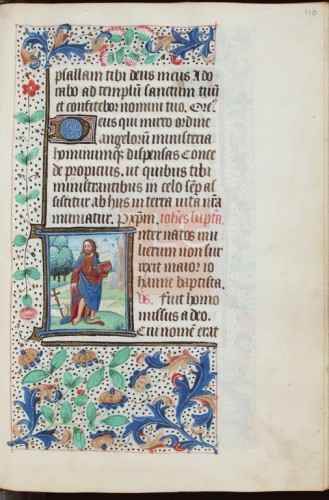 110
psallam tibi deus meus Ado
rabo ad templū sanctum tuū
et confitebor nomini tuo. Oreꝰ
Deus qui miro ordine
angelorū ministeria
hominumqꝫ dispensas Conce
de propicius. ut quibus tibi
ministrantibus in celo sēp as
sistitur ab hiis in terra uita nr̄a
muniatur. P xp̄m. iohēs bapta.
Inter natos mu
lierum non sur
rexit maior io
hanne baptista.
Vs. Fuit homo
missus a deo.
Cui nomē erat